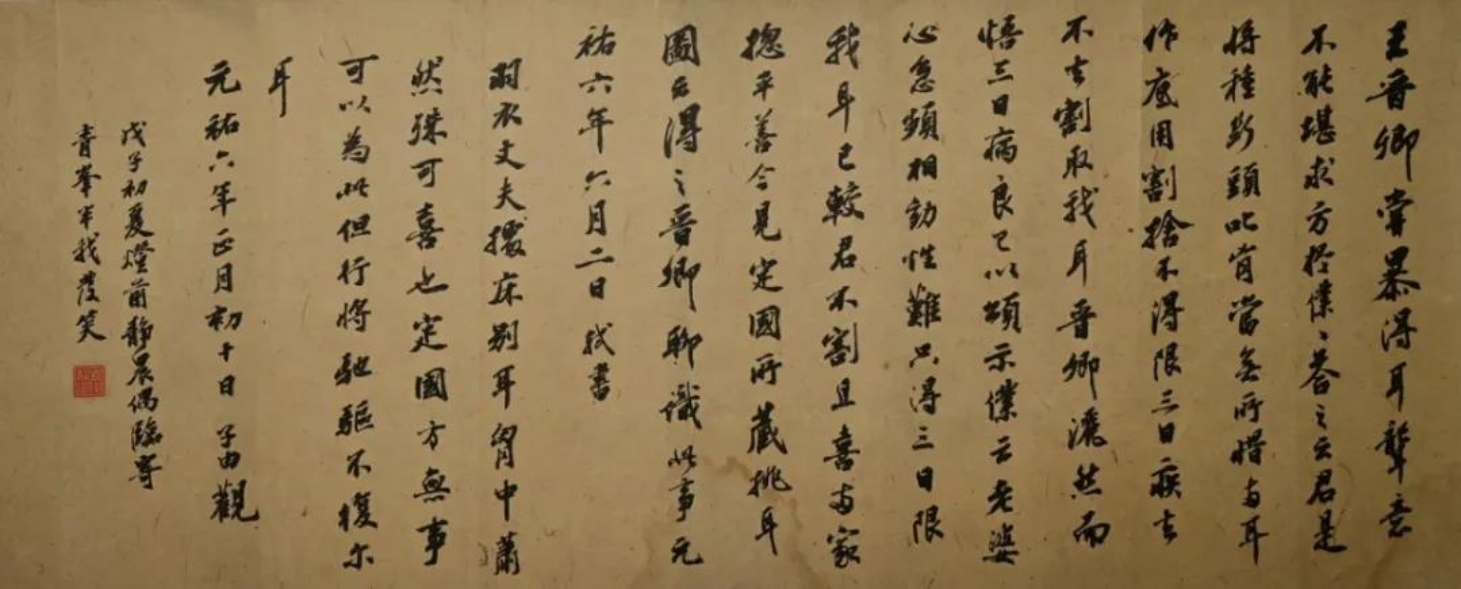 王晉卿嘗暴得耳聾意
不能堪求方於僕僕答之云君是
將種斷頭此皆當無所惜兩耳
作底用割捨不得限三日疾去
不去割取我耳晉卿灑然而
悟三日病良已以頌示僕云老婆
心急頻相勸性難只得三日限
我耳已較君不割且喜兩家
揔平善今見定國所藏挑耳
圖云得之晉卿聊識此事元
祐六年六月二日軾書
羽衣丈夫據床剔耳胷中蕭
然殊可喜也定國方無事
可以為此但行將馳驅不復爾
耳
元祐六年正月初十日子由觀
戊子初夏燈前靜晨偶臨寄
青峯半我發笑